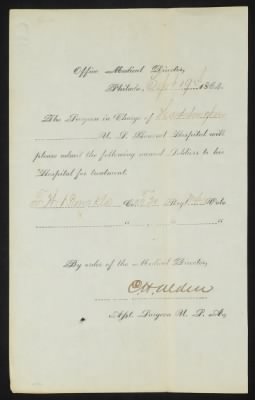 Office Medical Director,
Philada, Sept 19th 1864.
The Surgeon in Charge of
U. S. General Hospital will
please admit the following named Soldiers to his
Hospital for treatment.
Co. Regt. Vols
" "
By order of the Medical Director,
C. H. Alden
Asst. Surgeon U. S. A.